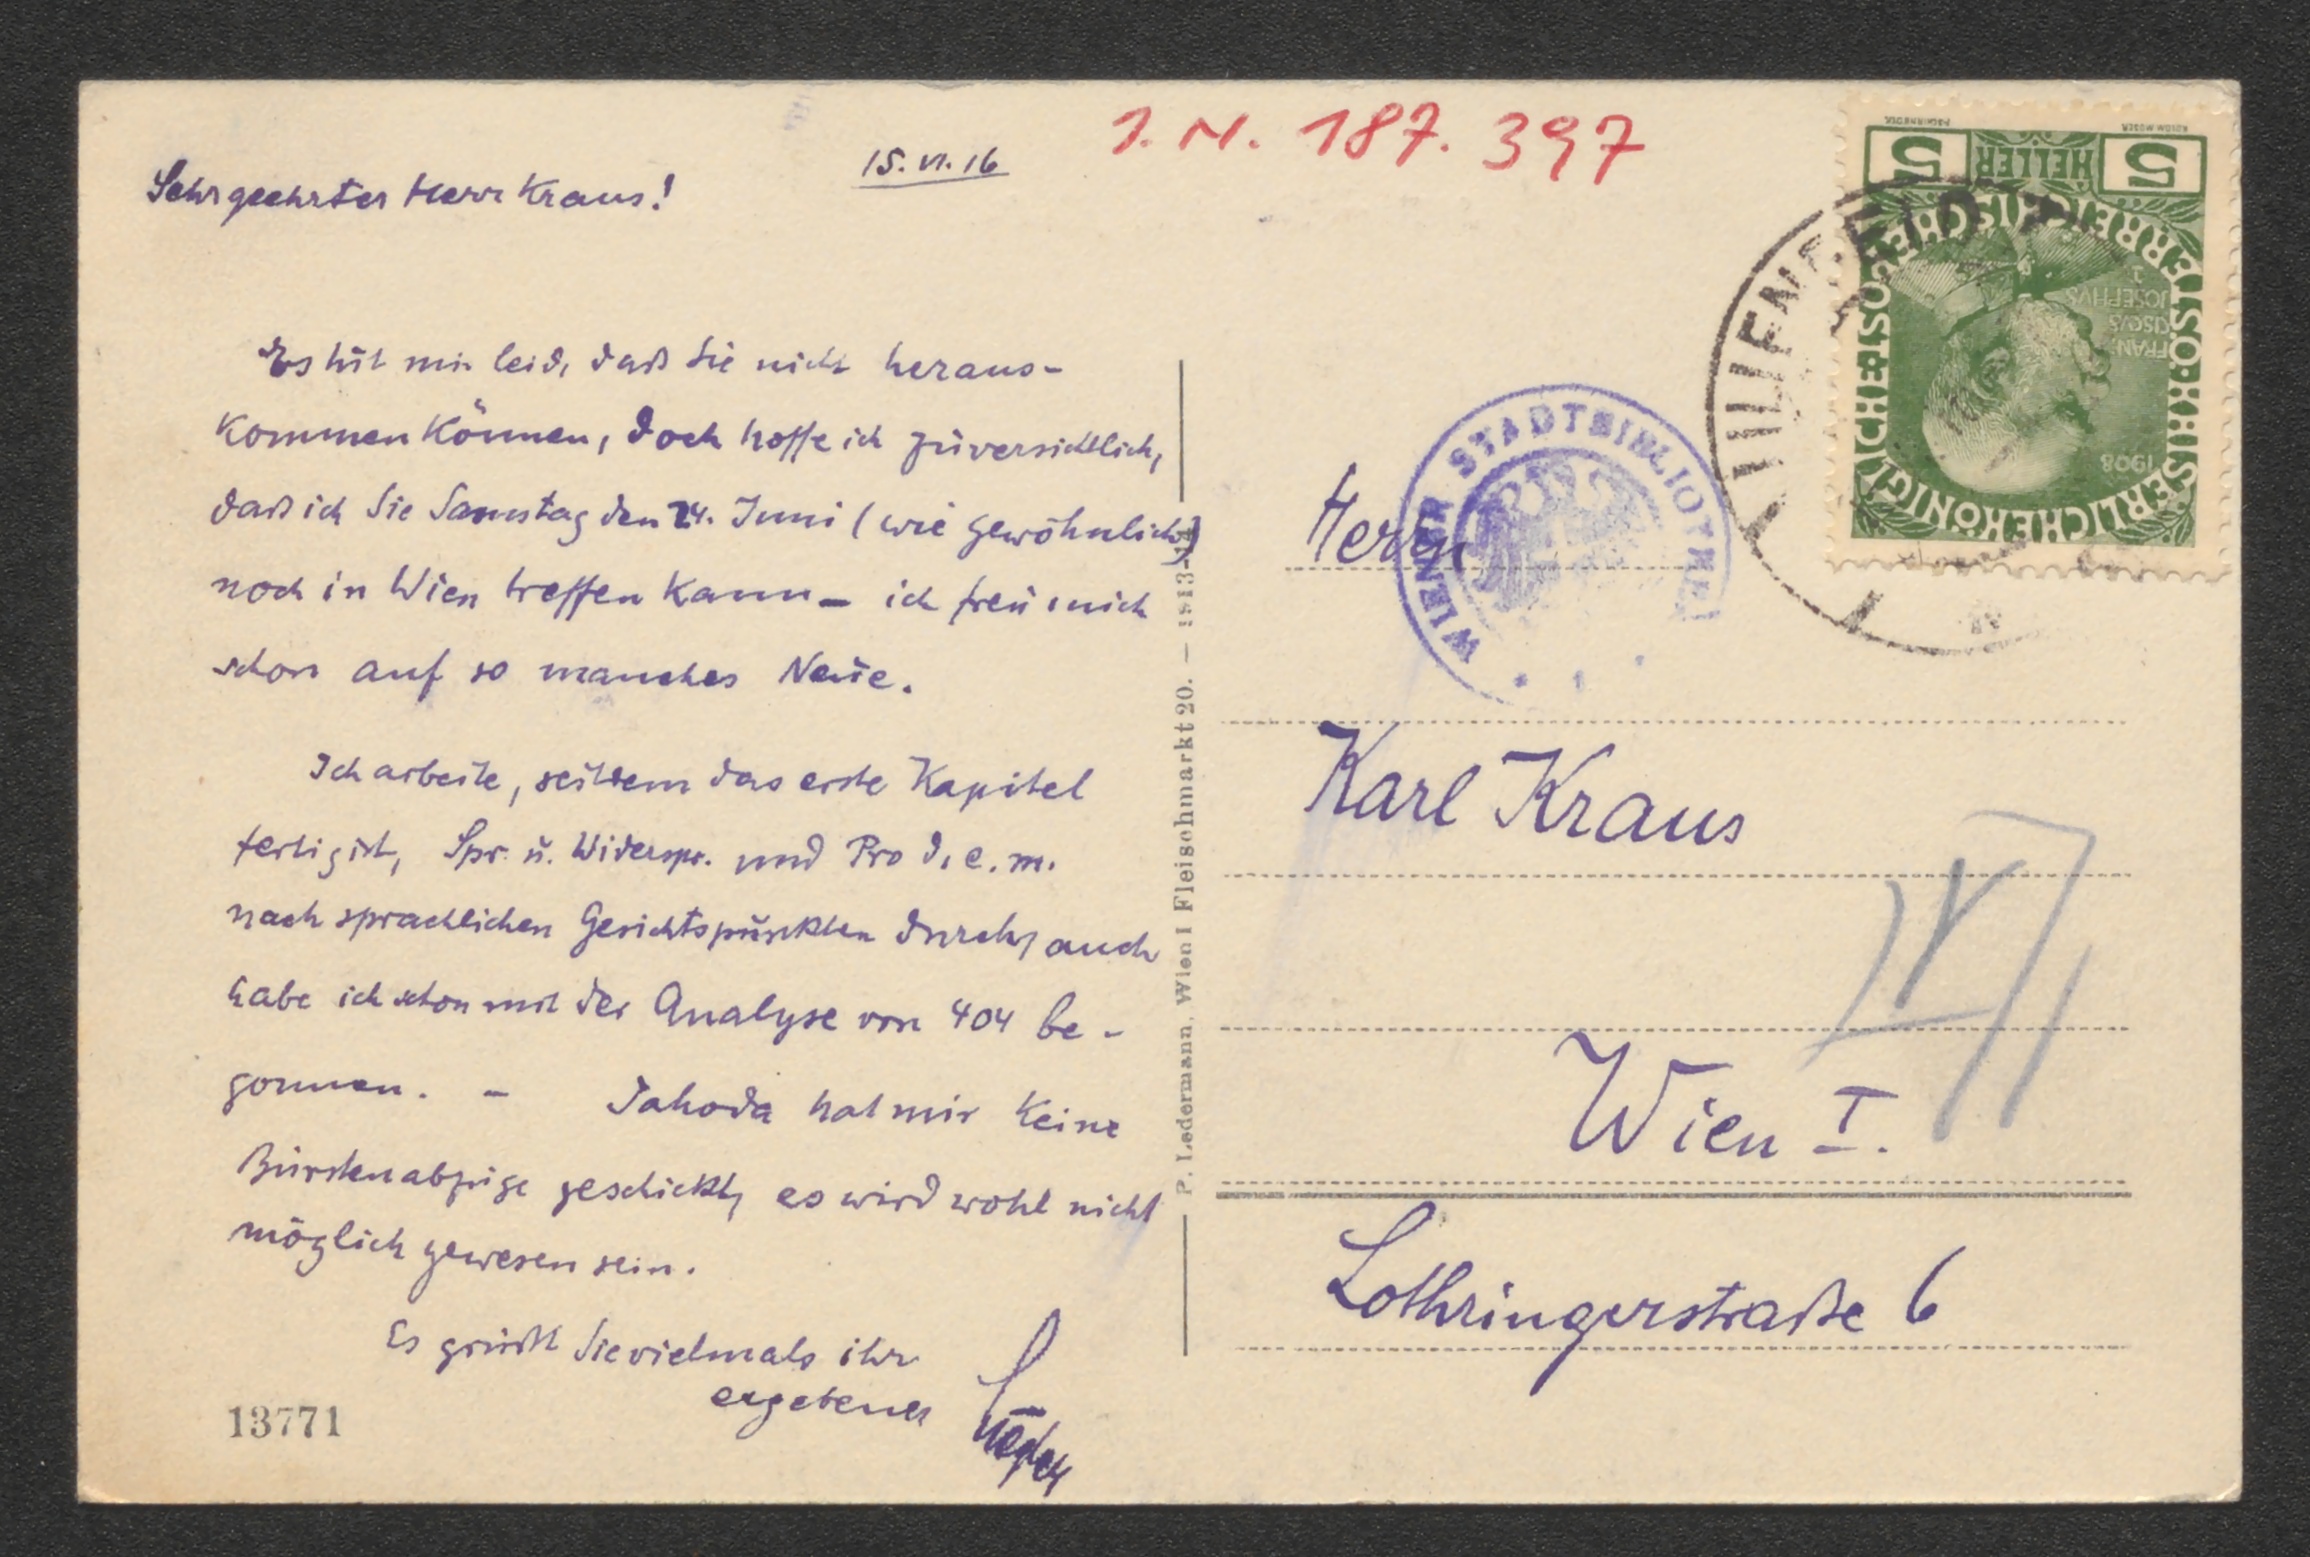 15. VI. 16
I. N. 187.397
Sehr geehrter Herr Kraus!
Es tut mir leid, daß Sie nicht heraus-
kommen können, doch hoffe ich zuversichtlich,
daß ich Sie Samstag den 24. Juni (wie gewöhnlich)
noch in Wien treffen kann – ich freu mich
schon auf so manches Neue.
Ich arbeite, seitdem das erste Kapitel
fertig ist, Spr. u. Widerspr. und Pro d. e. m.
nach sprachlichen Gesichtspunkten durch, auch
habe ich schon mit der Analyse von 404 be-
gonnen. – Jahoda hat mir keine
Bürstenabzüge geschickt, es wird wohl nicht
möglich gewesen sein.
Es grüßt Sie vielmals ihr
ergebener
13771
P. Ledermann, Wien I Fleischmarkt 20. – 1913-14
5 HELLER 5
KAISERLICHE KÖNIGLICHE ÖSTERREICHISCHE POST
FRAN
CISCVS
JOSEPHVS
I.
1908
LILIENFELD
WIENER STADTBIBLIOTHEK
Herrn
Karl Kraus
Wien I.
Lothringerstraße 6